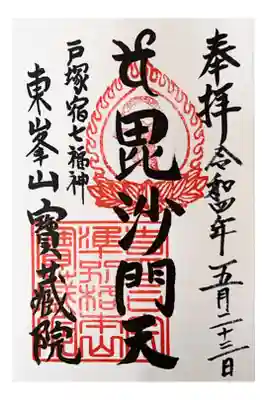 奉拝
令和四年
五月二十三日
毘沙門天
戸塚宿七福神
東峯山
寶藏院